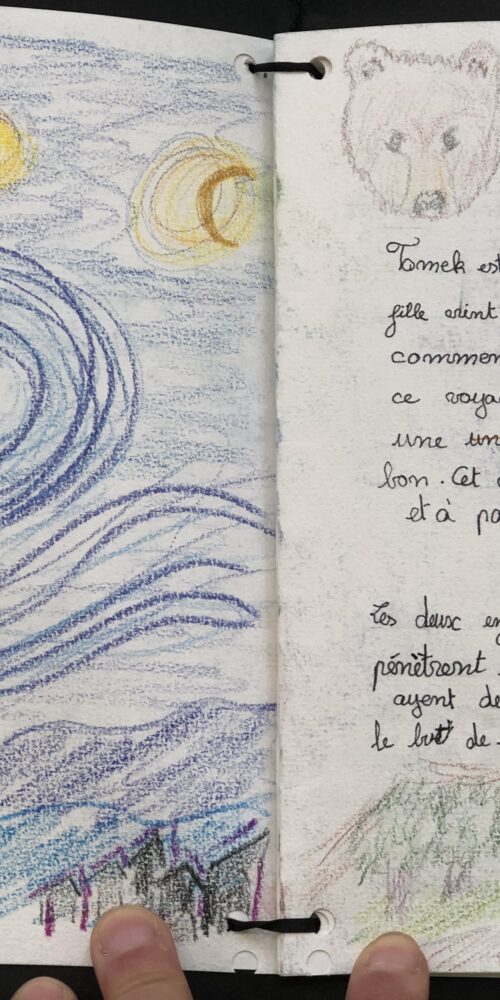 Tomek est
fille vint
commen
ce voya
une un
bon. Cet
et à pa
Les deux en
pénètrent
ayent de
le but de